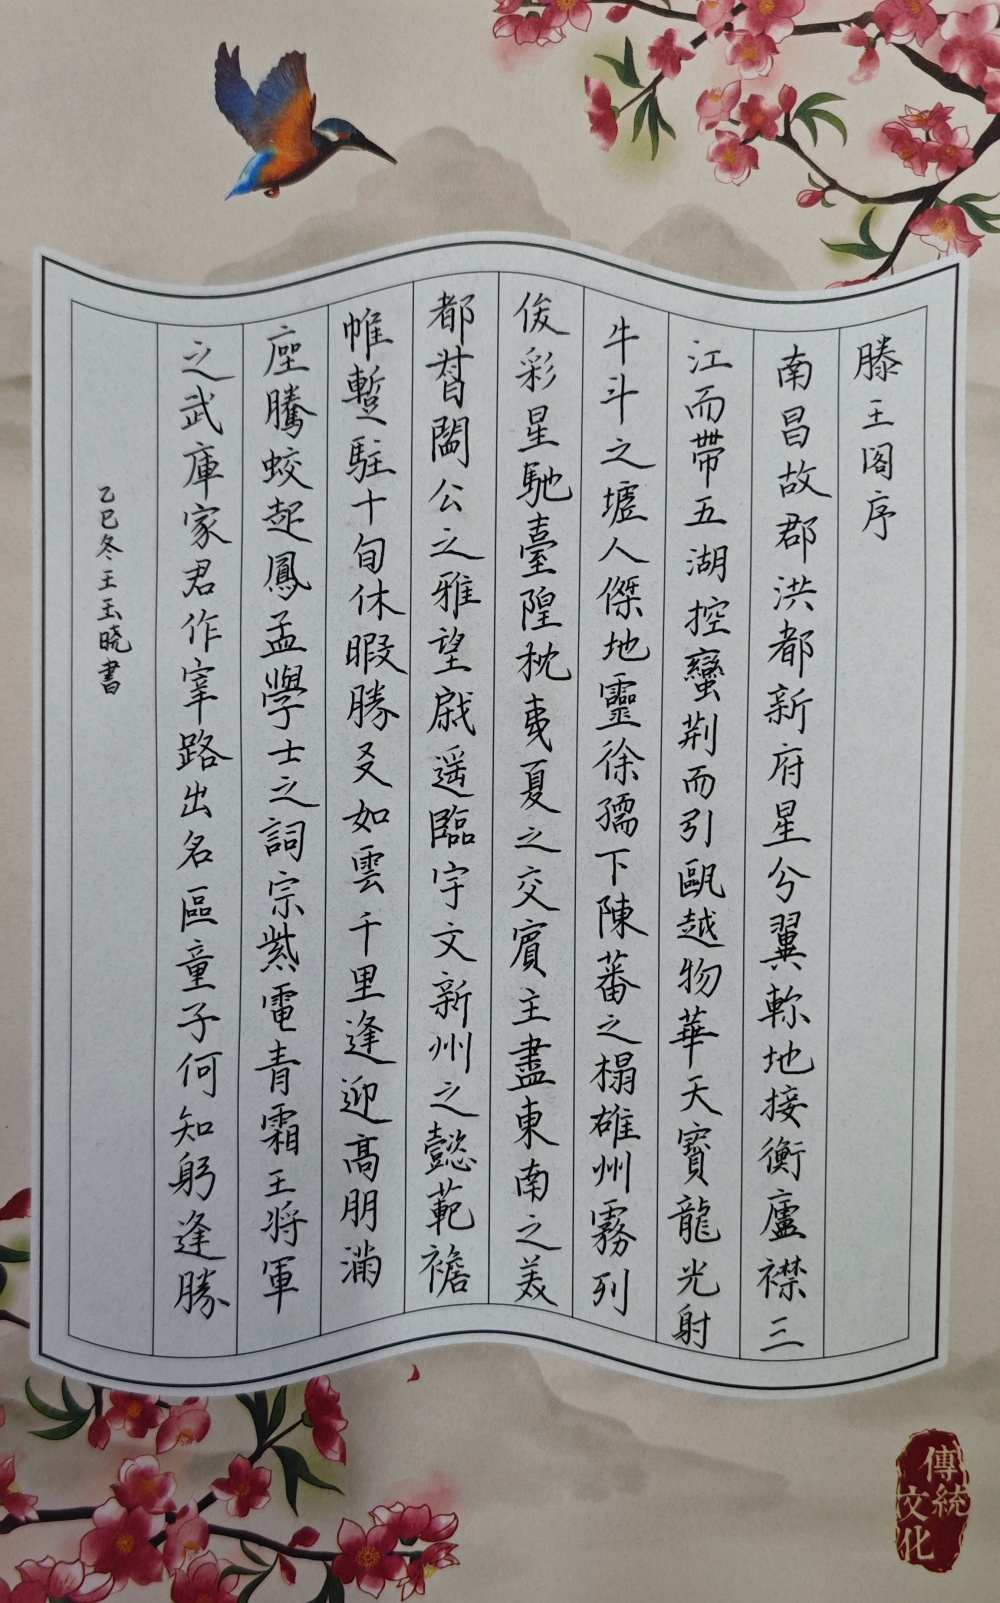 滕王阁序
南昌故郡洪都新府星兮翼軫地接衡廬襟三
江而帶五湖控蠻荆而引甌越物華天寶龍光射
牛斗之墟人傑地靈徐孺下陳蕃之榻雄州霧列
俊彩星馳臺隍枕夷夏之交賓主盡東南之美
都督閻公之雅望戚遥臨宇文新州之懿範襜
帷蹔駐十旬休暇勝友如雲千里逢迎高朋滿
座騰蛟起鳳孟學士之詞宗紫電青霜王将軍
之武庫家君作宰路出名區童子何知躬逢勝
乙巳冬王玉晓書
傳統
文化